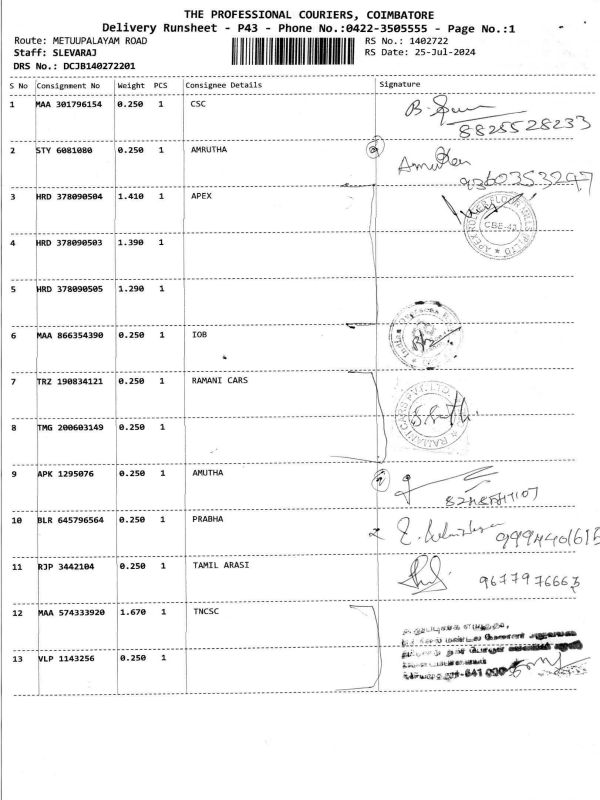 THE PROFESSIONAL COURIERS, COIMBATORE
Delivery Runsheet - P43 - Phone No.:0422-3505555 - Page No.:1
Route: METUUPALAYAM ROAD
RS No.: 1402722
Staff: SLEVARAJ
RS Date: 25-Jul-2024
DRS No.: DCJB140272201
S No Consignment No Weight PCS Consignee Details Signature
1 MAA 301796154 0.250 1 CSC
8825528233
2 STY 6081080 0.250 1 AMRUTHA
9360353297
3 HRD 378090504 1.410 1 APEX
APEX ROLLER FLOUR MILLS (P) LTD
CBE-43
4 HRD 378090503 1.390 1
5 HRD 378090505 1.290 1
6 MAA 866354390 0.250 1 IOB
Indian Overseas
7 TRZ 190834121 0.250 1 RAMANI CARS
RAMANI CARS PVT. LTD.
8 TMG 200603149 0.250 1
9 APK 1295076 0.250 1 AMUTHA
10 BLR 645796564 0.250 1 PRABHA
11 RJP 3442104 0.250 1 TAMIL ARASI
12 MAA 574333920 1.670 1 TNCSC
13 VLP 1143256 0.250 1